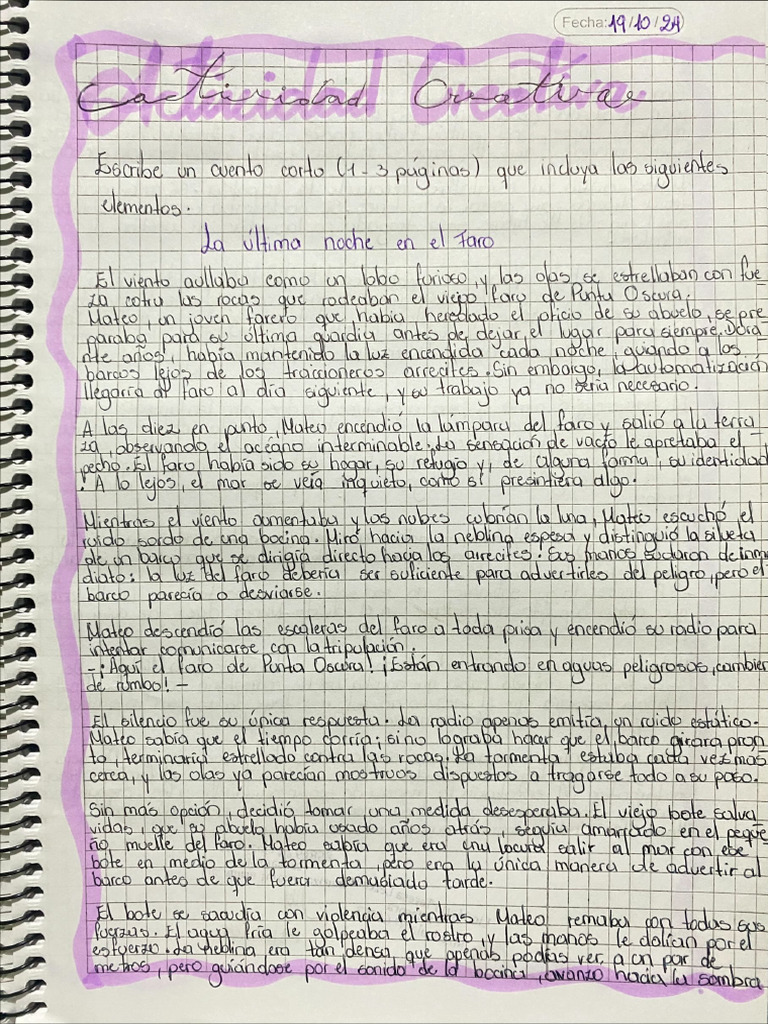 Fecha: 19/10/24
Actividad Creativa
Escribe un cuento corto (1-3 páginas) que incluya los siguientes
elementos.
La última noche en el Faro
El viento aullaba como un lobo furioso, y las olas se estrellaban con fue
za cotra las rocas que rodeaban el viejo faro de Punta Oscura.
Mateo, un joven farero que había heredado el oficio de su abuelo, se pre
paraba para su última guardia antes de dejar el lugar para siempre. Dura
nte años, había mantenido la luz encendida cada noche, guiando a los
barcos lejos de los traicioneros arrecifes. Sin embargo, la automatización
llegaría al faro al día siguiente, y su trabajo ya no sería necesario.
A las diez en punto, Mateo encendió la lámpara del faro y salió a la terra
za, observando el océano interminable. La sensación de vacío le apretaba el
pecho. El faro había sido su hogar, su refugio y, de alguna forma, su identidad
. A lo lejos, el mar se veía inquieto, como si presintiera algo.
Mientras el viento aumentaba y las nubes cubrían la luna, Mateo escuchó el
ruido sordo de una bocina. Miró hacia la neblina espesa y distinguió la silueta
de un barco que se dirigía directo hacia los arrecifes. Sus manos sudaron de inme
diato: la luz del faro debería ser suficiente para advertirles del peligro, pero el
barco parecía o desviarse.
Mateo descendió las escaleras del faro a toda prisa y encendió su radio para
intentar comunicarse con la tripulación.
-¡Aquí el faro de Punta Oscura! ¡Están entrando en aguas peligrosas, cambien
de rumbo! -
El silencio fue su única respuesta. La radio apenas emitía un ruido estático.
Mateo sabía que el tiempo corría; sino lograba hacer que el barco girara pron
to, terminaría estrellado contra las rocas. La tormenta estaba cada vez más
cerca, y las olas ya parecían mostruos dispuestos a tragarse todo a su paso.
Sin más opción, decidió tomar una medida desesperaba. El viejo bote salva
vidas, que su abuelo había usado años atrás, seguía amarrado en el peque
ño muelle del faro. Mateo sabía que era una locura salir al mar con ese
bote en medio de la tormenta, pero era la única manera de advertir al
barco antes de que fuera demasiado tarde.
El bote se sacudía con violencia mientras Mateo remaba con todas sus
fuerzas. El agua fría le golpeaba el rostro, y las manos le dolían por el
esfuerzo. La neblina era tan densa, que apenas podías ver a un par de
metros, pero guiándose por el sonido de la bocina, avanzo hacia la sombra